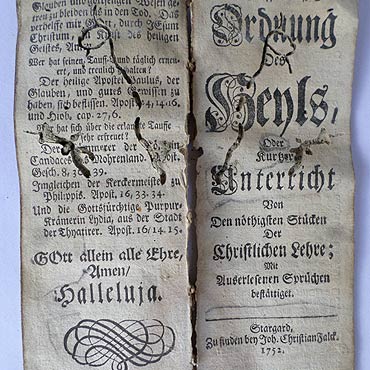 Glauben und gottseligen Wesen ge-
treu zu bleiben bis in den Tod. Das
verhelffe mir Gott, durch JEsum
Christum, in Kraft des heiligen
Geistes, Amen.
Wer hat seinen Tauff-Bund täglich erneu-
ert, und treulich gehalten?
Der heilige Apostel Paulus, der
Glauben, und gutes Gewissen zu
haben, sich beflissen. Apost. 24, 14. 16.
und Hiob, cap. 27, 6.
Wer hat sich über die erlangte Tauffe
sehr erfreuet?
Der Cämmerer der Königin
Candaces Mohrenland. Apost.
Gesch. 8, 36. 39.
Jngleichen der Kerckermeister zu
Philippis. Apost. 16, 33. 34.
Und die Gottsfürchtige Purpur-
Krämerin Lydia, aus der Stadt
der Thyatirer. Apost. 16/ 14. 15.
GOtt allein alle Ehre,
Amen/
Halleluja.
Ordnung
Des
Heyls,
Oder
Kurtzer
Unterricht
Von
Den nöthigsten Stücken
Der
Christlichen Lehre;
Mit
Auserlesenen Sprüchen
bestättiget.
Stargard,
Zu finden bey Joh. Christian Falck.
1752.